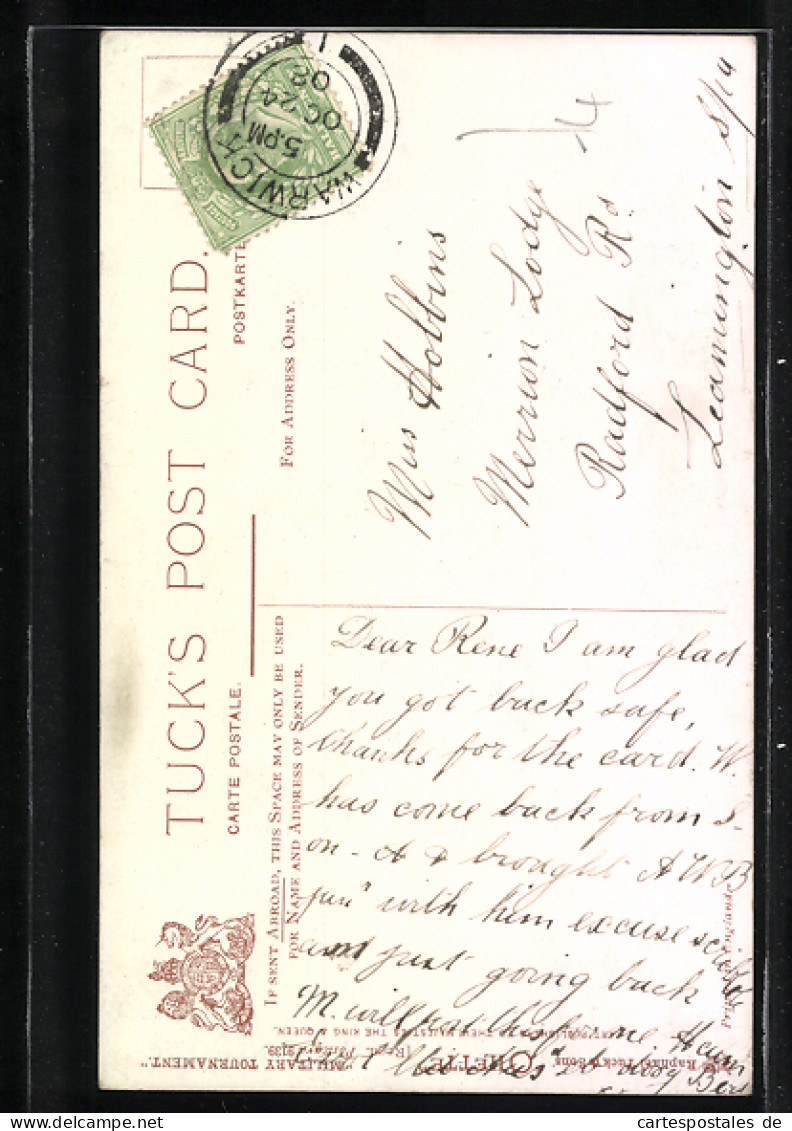 TUCK'S POST CARD.
CARTE POSTALE.
POSTKARTE
FOR ADDRESS ONLY.
IF SENT ABROAD, THIS SPACE MAY ONLY BE USED
FOR NAME AND ADDRESS OF SENDER.
WARWICK
5.PM
OC 24
08
Miss Hobbins
Merrion Lodge
Radford Rd.
Leamington Spa
Dear Rene I am glad
you got back safe,
thanks for the card. W.
has come back from S-
on-A & brought A W B
jun" with him excuse
just going back
M. will post this for me
Raphael Tuck & Sons "OILETTE"
"MILITARY TOURNAMENT."
Postcard 9139.
TO THEIR MAJESTIES THE KING & QUEEN.
www.cartespostales.de